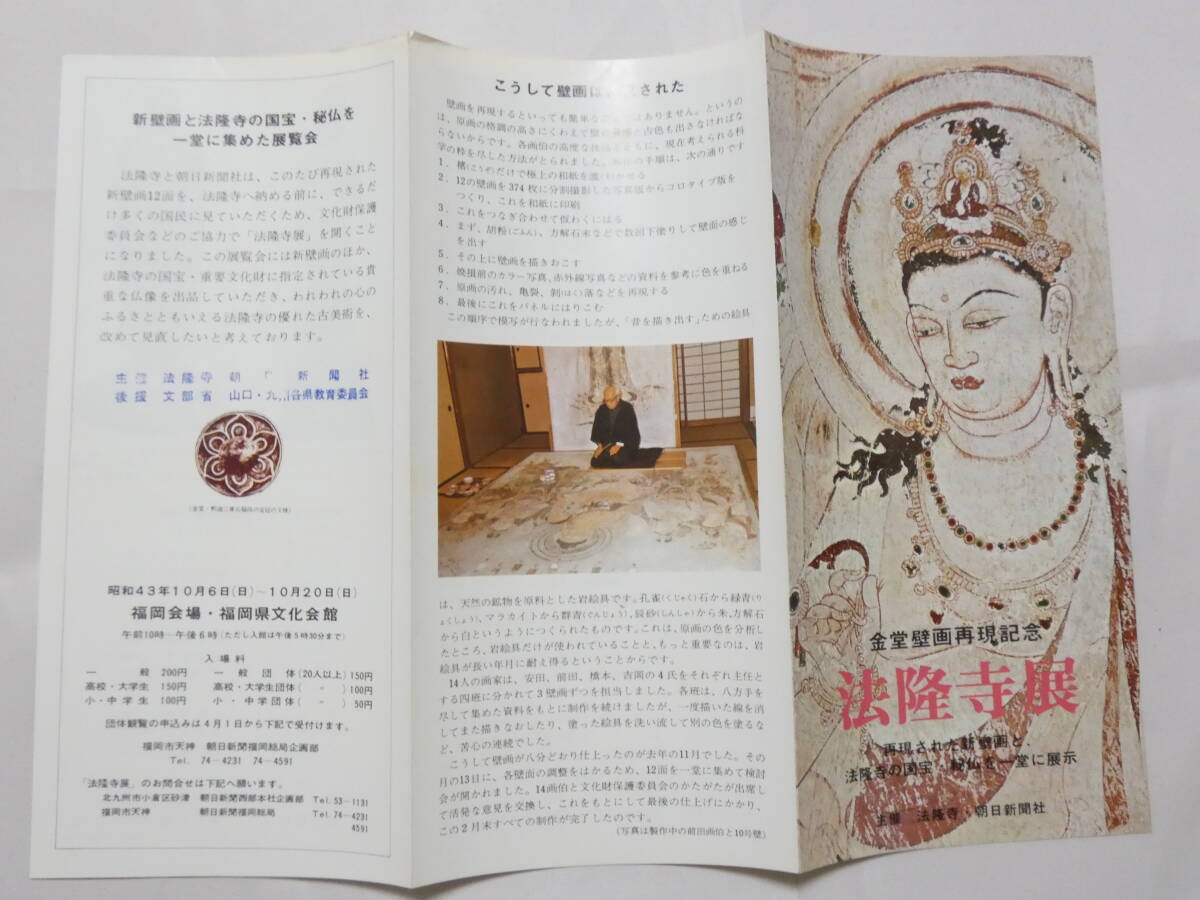 新壁画と法隆寺の国宝・秘仏を
一堂に集めた展覧会
法隆寺と朝日新聞社は、このたび再現された
新壁画12面を、法隆寺へ納める前に、できるだ
け多くの国民に見ていただくため、文化財保護
委員会などのご協力で「法隆寺展」を開くこと
になりました。この展覧会には新壁画のほか、
法隆寺の国宝・重要文化財に指定されている貴
重な仏像を出品していただき、われわれの心の
ふるさとともいえる法隆寺の優れた古美術を、
改めて見直したいと考えております。
主催 法隆寺 朝 新聞社
後援 文部省 山口・九州各県教育委員会
昭和43年10月6日(日)～10月20日(日)
福岡会場・福岡県文化会館
午前10時―午後6時(ただし入館は午後5時30分まで)
入場料
一般 200円 一般団体(20人以上)150円
高校・大学生 150円 高校・大学生団体(〃)100円
小・中学生 100円 小・中学団体(〃)50円
団体観覧の申込みは4月1日から下記で受付けます。
福岡市天神 朝日新聞福岡総局企画部
Tel. 74―4231 74―4591
「法隆寺展」のお問合せは下記へ願います。
北九州市小倉区砂津 朝日新聞西部本社企画部 Tel. 53―1131
福岡市天神 朝日新聞福岡総局 Tel. 74―4231
4591
こうして壁画は された
壁画を再現するといっても簡単な はありません。というの
は、原画の格調の高さにくわえて壁の 古色も出さなければな
らないからです。各画伯の高度な技 ともに、現在考えられる科
学の粋を尽した方法がとられました。 の手順は、次の通りです
1. 楮(こうぞ)だけで極上の和紙を漉 せる
2. 12の壁画を374枚に分割撮影した写真版からコロタイプ版を
つくり、これを和紙に印刷
3. これをつなぎ合わせて仮わくにはる
4. まず、胡粉(ごふん)、方解石末などで数回下塗りして壁面の感じ
を出す
5. その上に壁画を描きおこす
6. 焼損前のカラー写真、赤外線写真などの資料を参考に色を重ねる
7. 原画の汚れ、亀裂、剝(はく)落などを再現する
8. 最後にこれをパネルにはりこむ
この順序で模写が行なわれましたが、「昔を描き出す」ための絵具
は、天然の鉱物を原料とした岩絵具です。孔雀(くじゃく)石から緑青(り
ょくしょう)、マラカイトから群青(ぐんじょう)、辰砂(しんしゃ)から朱、方解石
から白というようにつくられたものです。これは、原画の色を分析し
たところ、岩絵具だけが使われていることと、もっと重要なのは、岩
絵具が長い年月に耐え得るということからです。
14人の画家は、安田、前田、橋本、吉岡の4氏をそれぞれ主任と
する四班に分かれて3壁画ずつを担当しました。各班は、八方手を
尽して集めた資料をもとに制作を続けましたが、一度描いた線を消
してまた描きなおしたり、塗った絵具を洗い流して別の色を塗るな
ど、苦心の連続でした。
こうして壁画が八分どおり仕上ったのが去年の11月でした。その
月の13日に、各壁面の調整をはかるため、12面を一堂に集めて検討
会が開かれました。14画伯と文化財保護委員会のかたがたが出席し
て活発な意見を交換し、これをもとにして最後の仕上げにかかり、
この2月末すべての制作が完了したのです。
(写真は製作中の前田画伯と10号壁)
金堂壁画再現記念
法隆寺展
再現された新壁画と
法隆寺の国宝・秘仏を一堂に展示
主催 法隆寺・朝日新聞社